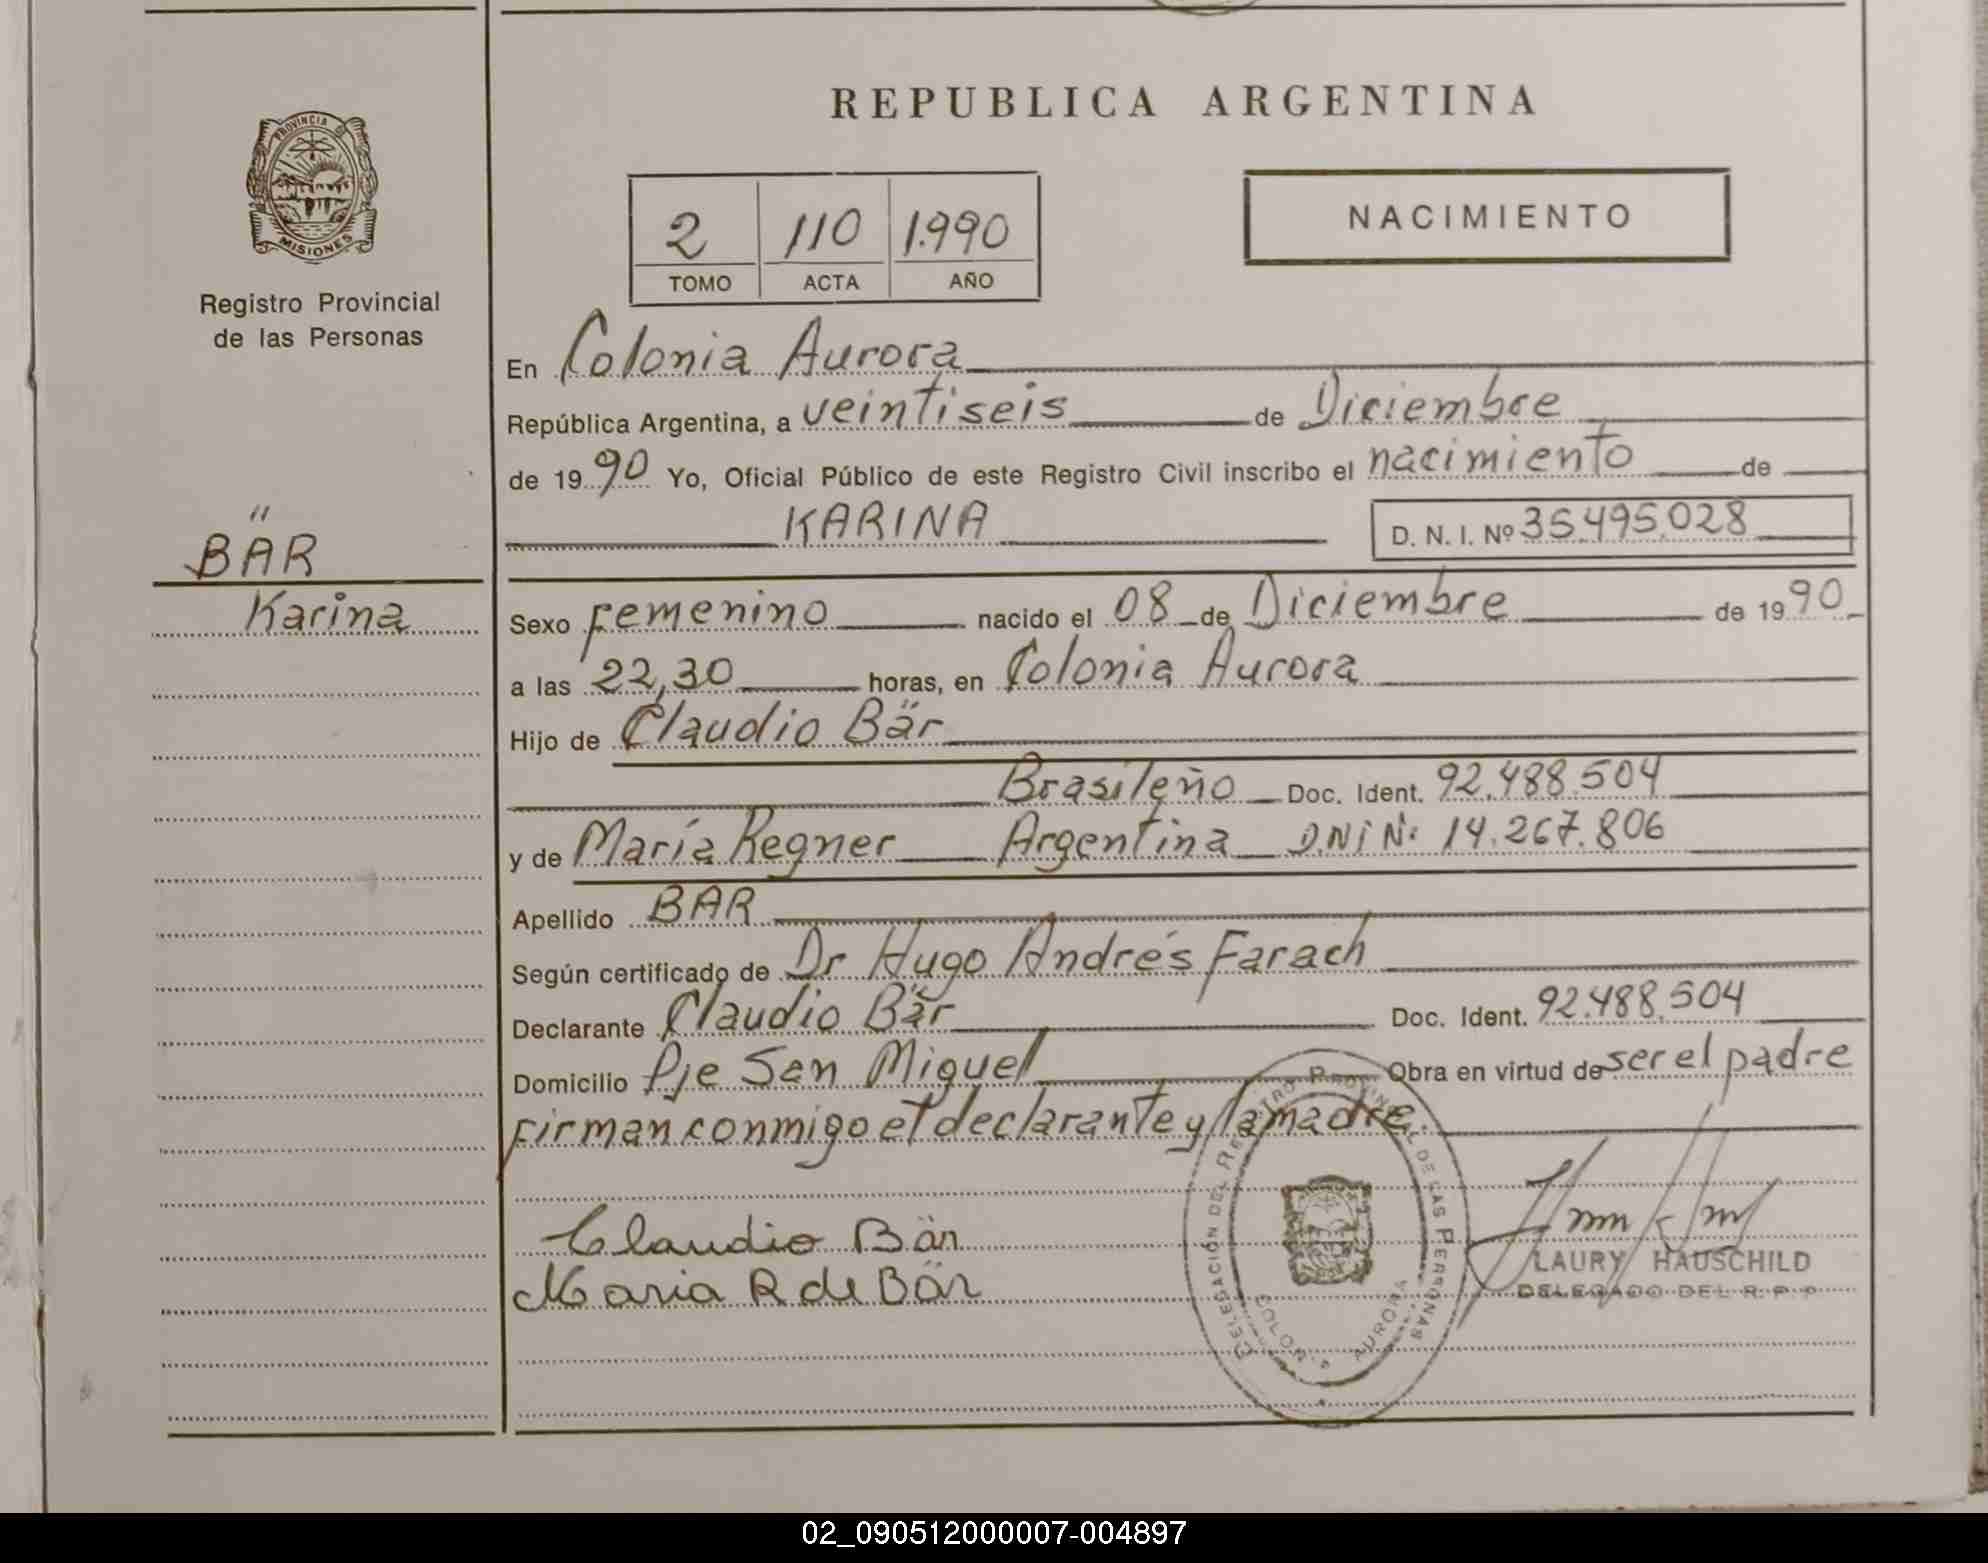 REPUBLICA ARGENTINA
PROVINCIA DE
MISIONES
Registro Provincial
de las Personas
2 110 1.990
TOMO ACTA AÑO
NACIMIENTO
En Colonia Aurora
República Argentina, a veintiseis de Diciembre
de 1990 Yo, Oficial Público de este Registro Civil inscribo el nacimiento de
KARINA D. N. I. Nº 35.495.028
BÄR
Karina
Sexo femenino nacido el 08 de Diciembre de 1990
a las 22,30 horas, en Colonia Aurora
Hijo de Claudio Bär
Brasileño Doc. Ident. 92.488.504
y de María Regner Argentina D.N.I Nº 14.267.806
Apellido BAR
Según certificado de Dr Hugo Andrés Farach
Declarante Claudio Bär Doc. Ident. 92.488.504
Domicilio Pje San Miguel Obra en virtud de ser el padre
firman conmigo el declarante y la madre.
Claudio Bär
Maria R de Bär
DELEGACIÓN DEL REGISTRO PROVINCIAL DE LAS PERSONAS
COLONIA AURORA
LAURY HAUSCHILD
DELEGADO DEL R. P. P.
02_090512000007-004897